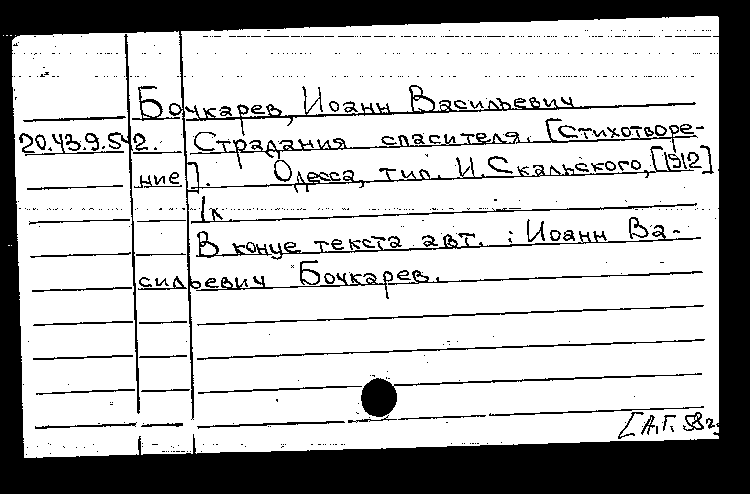 Бочкарев, Иоанн Васильевич
20.43.9.542. Страдания спасителя. [Стихотворе-
ние]. Одесса, тип. И. Скальского, [1912]
1л.
В конце текста авт. : Иоанн Ва-
сильевич Бочкарев.
[А.Г. 58г.